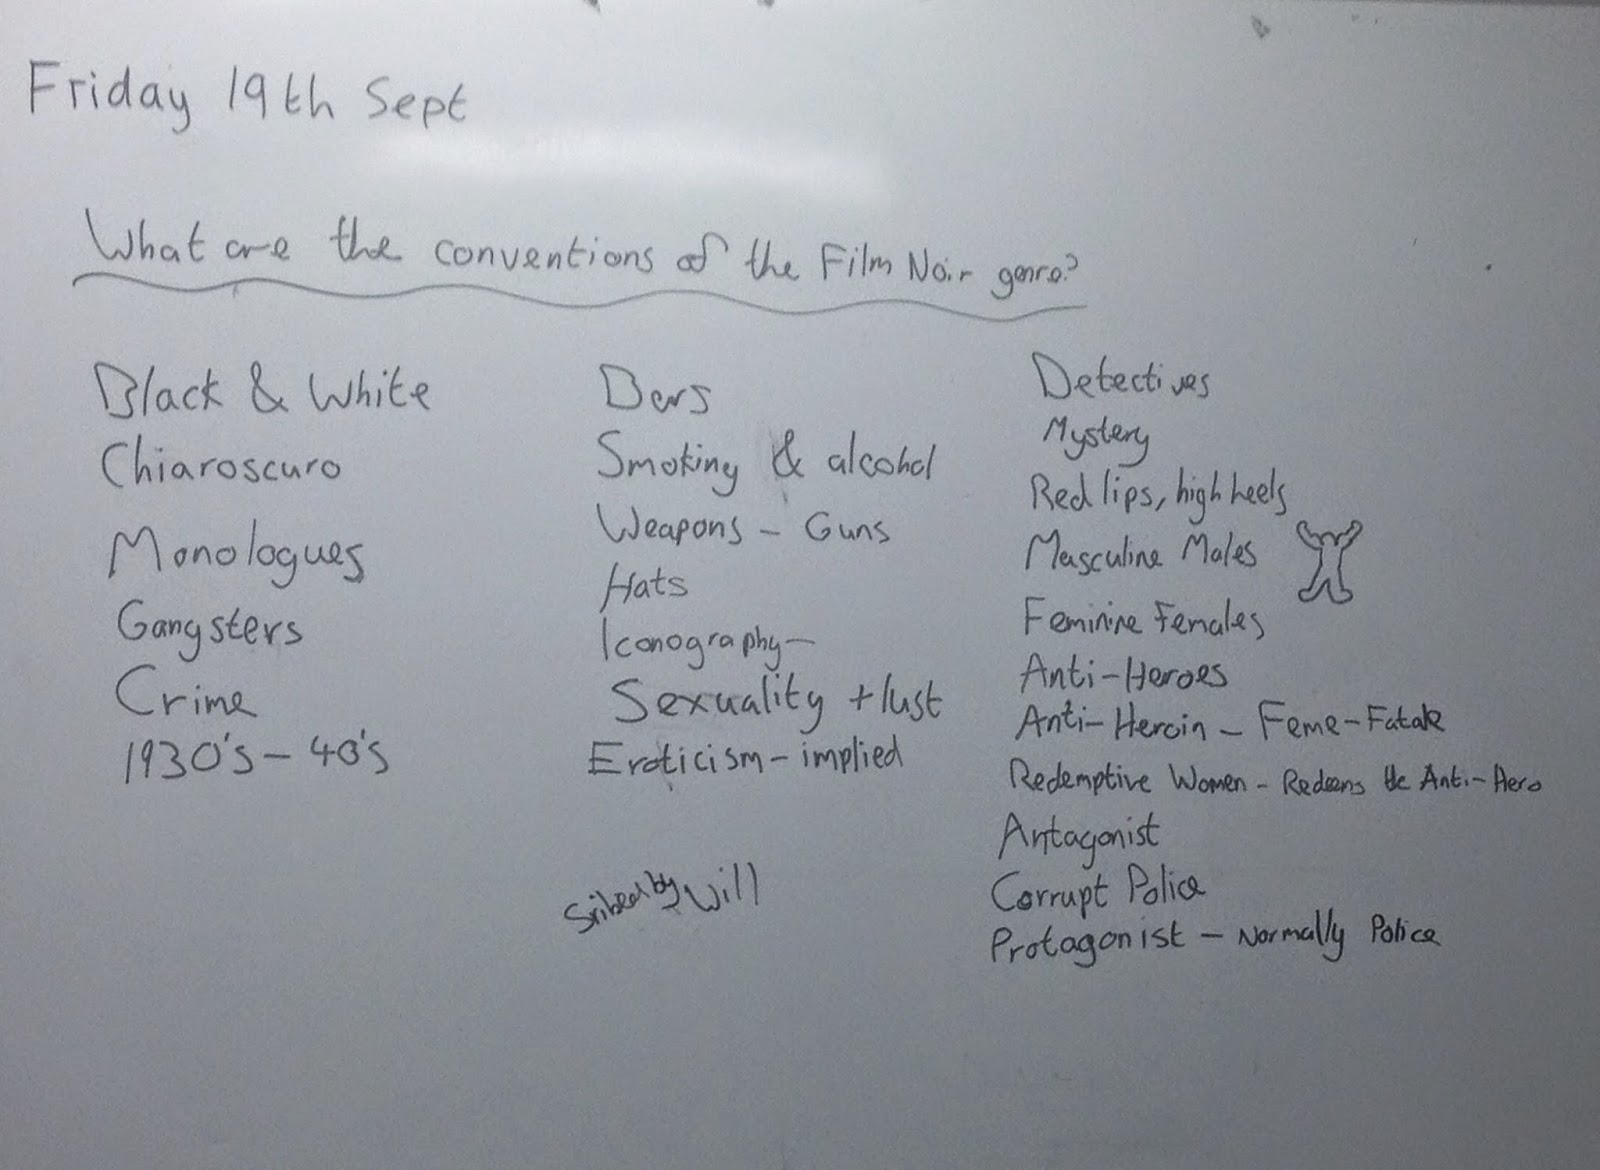 Friday 19th Sept
What are the conventions of the Film Noir genre?
Black & White
Chiaroscuro
Monologues
Gangsters
Crime
1930's - 40's
Bars
Smoking & alcohol
Weapons - Guns
Hats
Iconography -
Sexuality + lust
Eroticism - implied
Scribed by Will
Detectives
Mystery
Red lips, high heels
Masculine Males
Feminine Females
Anti-Heroes
Anti-Heroin - Feme-Fatale
Redemptive Women - Redeems the Anti-Hero
Antagonist
Corrupt Police
Protagonist - Normally Police